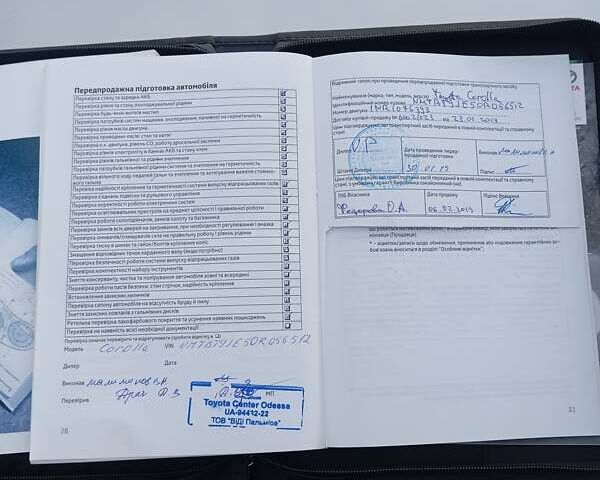 Передпродажна підготовка автомобіля
Перевірка стану та зарядки АКБ
Перевірка рівня та стану охолоджувальної рідини
Перевірка будь-яких витоків мастил
Перевірка патрубків системи охолодження, на герметичність
Перевірка рівня масла двигуна
Перевірка приводних пасів: стан та натяг
Перевірка рівня електроліту в банках АКБ та стану клем
Перевірка рівня гальмівної рідини
Перевірка патрубків гальмівної системи та зчеплення на герметичність
Перевірка вільного ходу педалей гальм та зчеплення та затягування важеля стоянко-
вого гальма
Перевірка надійності кріплення та герметичності системи випуску відпрацьованих газів
Перевірка з'єднань підвіски та рульового управління
Перевірка коректності роботи електричних систем
Перевірка освітлювальних пристроїв на предмет цілісності і правильної роботи
Перевірка роботи склопідйомачів, замків капоту та багажника
Перевірка замків всіх дверей на закривання, при необхідності регулювання і змазка
Перевірка омивачів/очищувачів скла на правильну роботу і рівень рідини
Перевірка тиску в шинах та гайок/болтів кріплення коліс
Змащення відповідних точок карданного валу (якщо потрібно)
Перевірка безпечності роботи системи випуску відпрацьованих газів
Перевірка комплектності набору інструментів
Зняття консерванту, чистка та полірування автомобіля зовні та всередині
Перевірка роботи пасів безпеки, стан стрічок, надійність кріплення
Встановлення захисних ковпачків
Перевірка салону автомобіля на відсутність бруду й пилу
Зняття захисних ковпачків з гальмівних дисків
Ретельна перевірка лакофарбового покриття та усунення наявних пошкоджень
Перевірка на наявність всієї необхідної документації
Перевірки означені перевірити та відрегулювати (зробити відмітку в ☑)
Модель Corolla VIN NMTBY3JE50R056512
Дилер Дата
Виконав
Перевірив МП
Toyota Center Odessa
UA-94432-22
ТОВ "ВІДІ Пальміра"
28
Відривний талон про проведення передпродажної підготовки транспортного засобу
Найменування (марка, тип, модель, версія) Toyota Corolla
Ідентифікаційний номер кузову NMTBY3JE50R056512
Номер двигуна
Договір купівлі-продажу № від 23.01.2019
Цим підтверджується, що транспортний засіб переданий в повній комплектації та справному
стані
Дилер
Дата проведення перед-
продажної підготовки
Виконав
Штамп Дилера 30.01.19 Підпис
Цим підтверджується, що транспортний засіб переданий в повній комплектації та справному
стані, з умовами гарантії ознайомлений(на).
ПІБ Власника Дата продажу Підпис Власника
Федорова О.А. 06.02.2019
компанія (Продавця).
• - відмітки/записи щодо обмеження, припинення або подовження гарантійних зо-
бов'язань вносяться в розділ "Особливі відмітки".
31